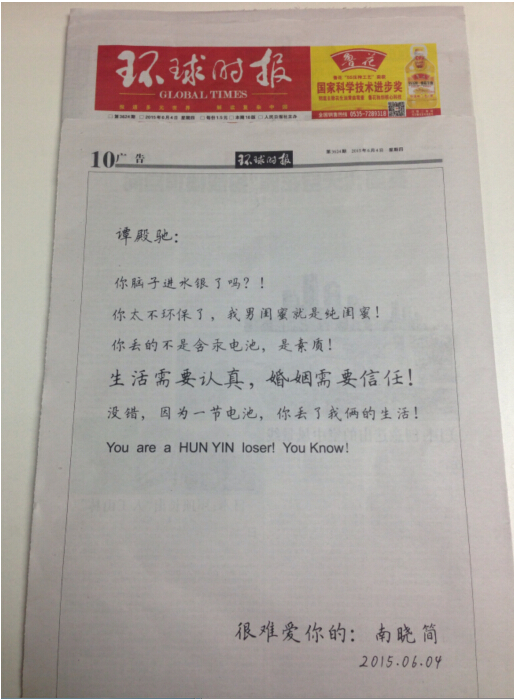 环球时报
GLOBAL TIMES
鲁花
国家科学技术进步奖
全国服务热线 0535-7289318
10 广告
环球时报
谭殿驰：
你脑子进水银了吗？！
你太不环保了，我男闺蜜就是纯闺蜜！
你丢的不是含汞电池，是素质！
生活需要认真，婚姻需要信任！
没错，因为一节电池，你丢了我俩的生活！
You are a HUN YIN loser! You Know!
很难爱你的：南晓简
2015.06.04